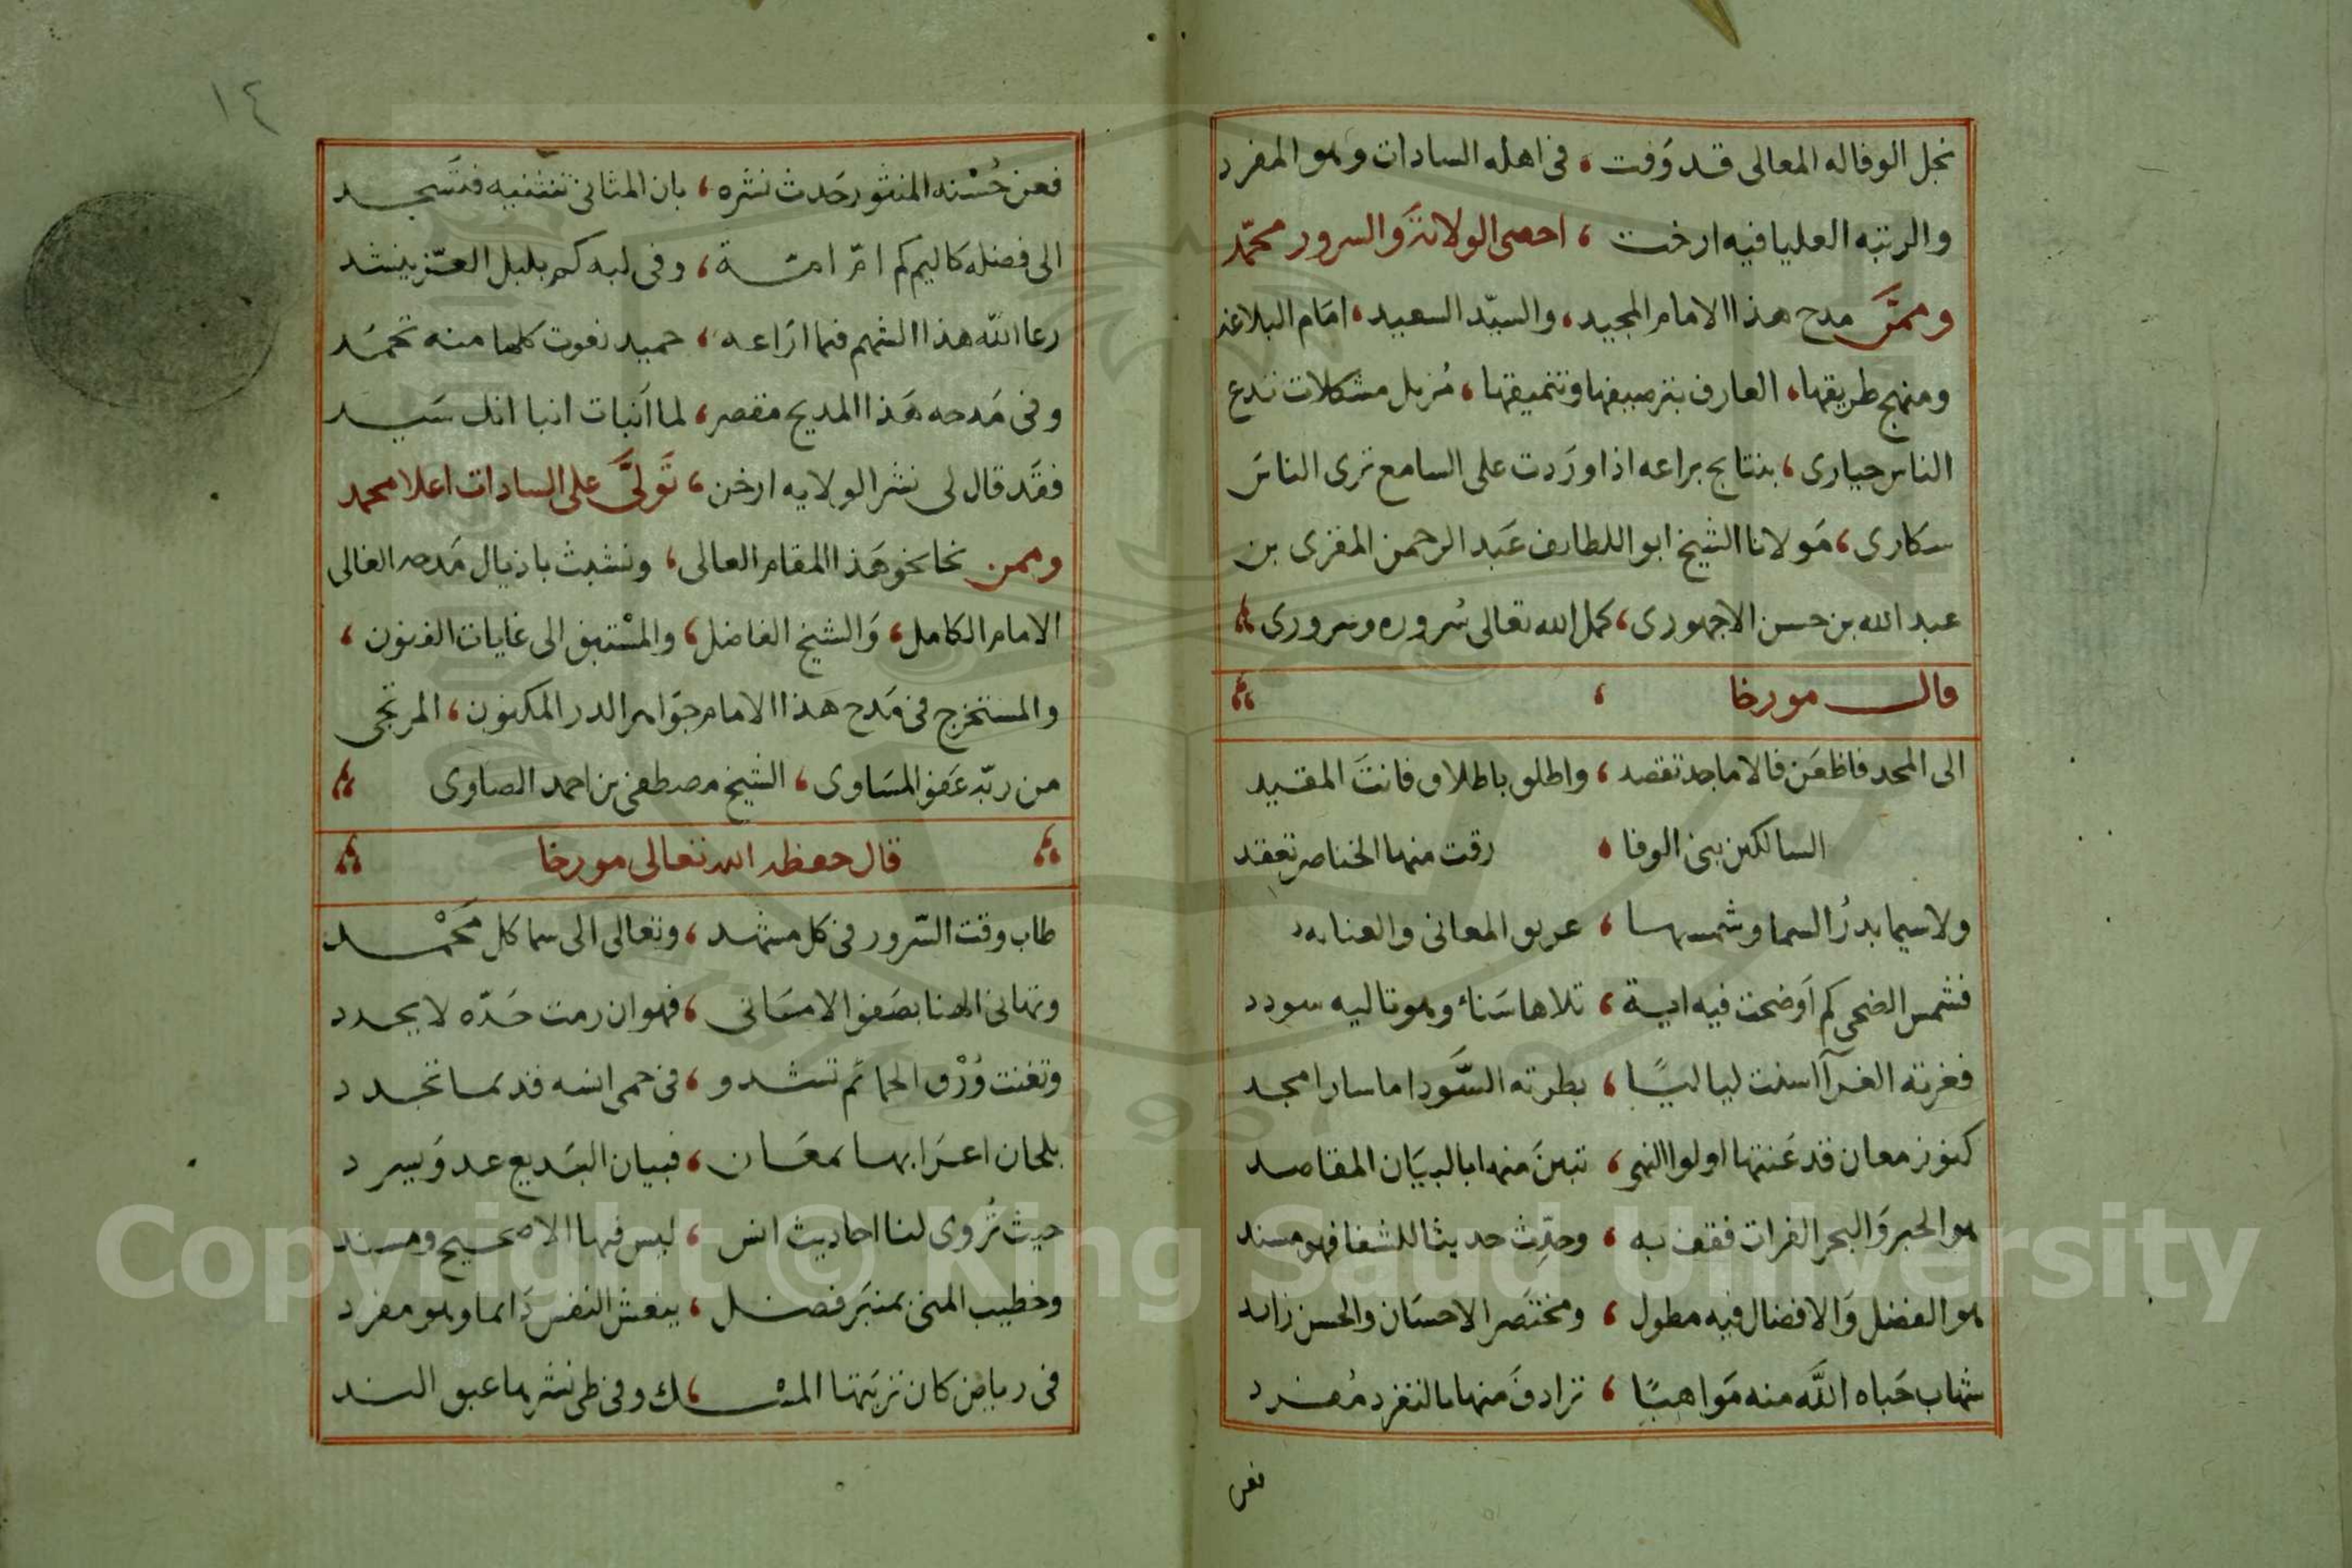 نجل الوفا له المعالى قد وَفت ، فى اهله السادات وهو المفرد
والرتبه العليا فيه ارخت ، احصى الولاتة والسرور محمّد
وممَّن مدح هذا الامام المجيد ، والسيّد السعيد ، امَام البلاغة
ومنهج طريقها ، العارف بترصيفها وتنميقها ، مُزيل مشكلات تدع
الناس حيارى ، بنتايج براعه اذا ورَدت على السامع ترى الناسَ
سكارى ، مَولانا الشيخ ابو اللطايف عَبد الرحمن المقرى بن
عبد الله بن حسن الاجهورى ، كمل الله تعالى سُروره وسرورى
قال مورخا ،
الى المجد فاظعَن فالاماجد تقصد ، واطلق باطلاق فانتَ المقيد
السالكين بنى الوفا ، رقت منها الخناصر تعقد
ولاسيما بدرُ السما وشمسها ، عريق المعانى والعنا به
فشمس الضحى كم اَوضحت فيه اية ، تلاها سَناء وهو تاليه سودد
فغرته الغرآ اسنت لياليًا ، بطرته السَّودا ما سار امجد
كنوز معان قد عَنتها اولوا النهى ، تبينَ منها بالبيَان المقاصد
هو الحبر وَالبحر الفرات فقف به ، وحدِّث حديثا للشفا فهو مسند
هو الفضل وَالافضال فيه مطول ، ومختصَر الاحسَان والحسن زايد
شهاب حَباه اللَّه منه مَواهبًا ، ترادفَ منها بالتفرد مُفرد
فعن
١٤
فعن حُسْنه المنثور حَدث نشره ، بان المثانى تنثنيه فتَسجد
الى فضله كاليم كم امّ امّة ، وفى لبه كم بلبل العــز ينشد
رعا الله هذا الشهم فما ارَاعه ، حميد نعوت كلها منه تحمَد
وفى مَدحه هَذا المديح مقصر ، لما اَنبات انبا انك سَيد
فقَد قال لى نشر الولايه ارخن ، تَولَّى على السادات اعلا محمد
وممن نحا نحو هَذا المقام العالى ، وتشبث باذيال مَدحه الغالى
الامام الكامل ، وَالشيخ الفاضل ، والمسْتبق الى غايات الفنون ،
والمستخرج فى مَدح هَذا الامام جوَاهر الدر المكنون ، المرتجى
من ربّه عَفو المسَاوى ، الشيخ مصطفى بن احمد الصاوى
قال حفظه الله تعالى مورخا
طاب وقت السّرور فى كل مشهد ، وتعالى الى سما كل مَحْمد
وتهانى الهنا بصَفو الامَانى ، فهو ان رمت حَدّه لا يحدد
وتغنت وُرْق الحمائم تشدو ، فى حمى انسه قديما تجدد
بلحان اعرَابها معَان ، فبيان البَديع عد وَيسرد
حيث تُروى لنا احاديث انس ، ليس فيها الا صحيح ومسند
وخطيب المنى بمنبَر فضل ، ينعش النفس دَايما وهو مفرد
فى رياض كان تربَتها المسْــ ، ــك وفى طى نشرها عبق الند
Copyright © King Saud University
1957